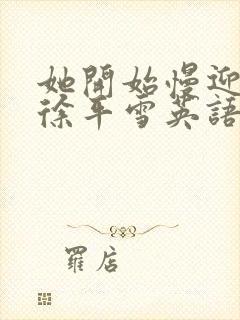 她開始慢迎
徐平雪英語
羅店